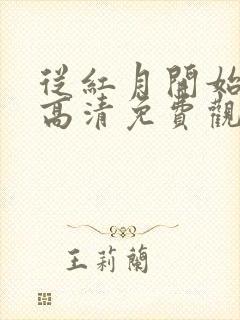 從紅月開始
高清免費觀
王莉蘭